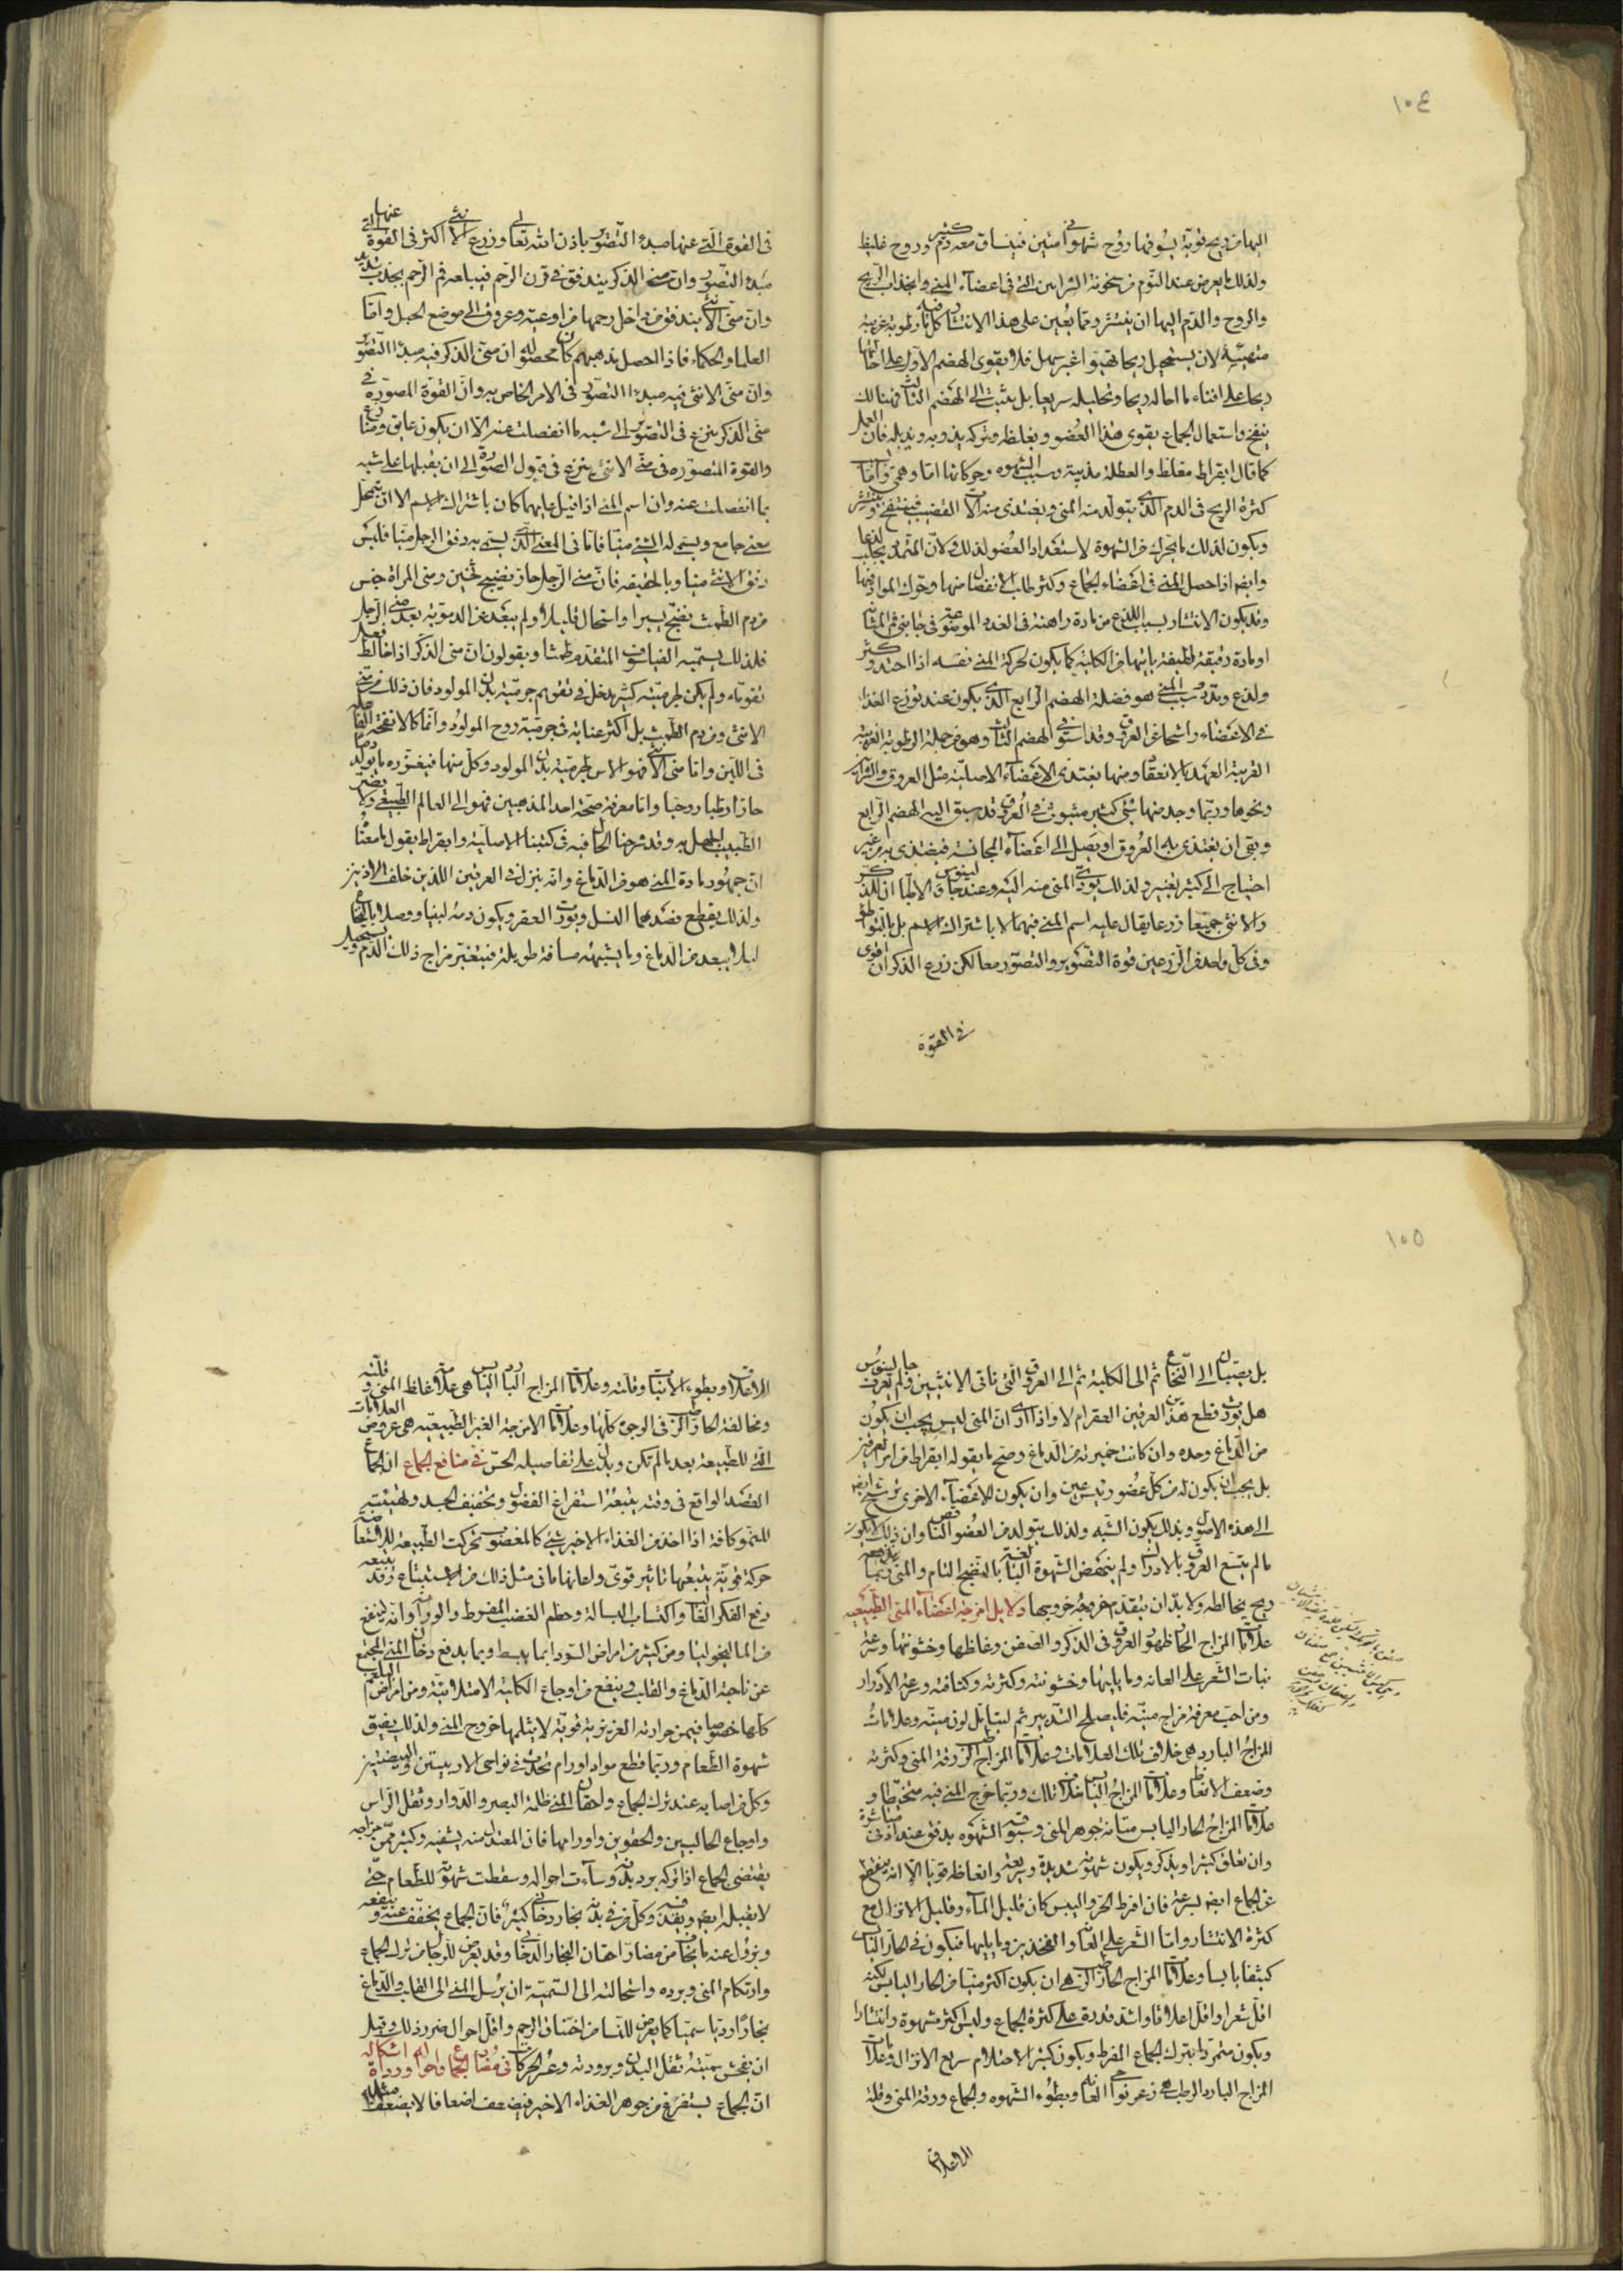 ١٠٤
اليها من ريح قوية يسوقها روح شهوانى متين فينساق معه دم كثير وروح غليظ
ولذلك ما يعرض عند النوم من سخونة الشرايين التى فى اعضاء المنى وانجذاب الريح
والروح والدم اليها ان ينتشر ومما يعين على هذا الانتشار كل ما فيه رطوبة غريبة
متهيئة لان يستحيل ريحا تهيئوا غير سهل فلا يقوى الهضم الاول على احالتها
ريحا على افناء ما احاله ريحا وتحليله سريعا بل يثبت الى الهضم الثالث فهنالك
ينفخ واستعمال الجماع يقوى هذا العضو ويغلظه وتركه يذويه ويذبله فان العمل
كما قال ابقراط مغلظ والعطلة مذيبة وسبب الشهوة وحركاتها اما وهمى واما
كثرة الريح فى الدم الذى يتولد منه المنى ويغتذى منه الات القضيب فينتفخ وينتشر
ويكون لذلك ما يحرك من الشهوة لاستعداد العضو لذلك ولان التمدد يجلب لذعا
وايضا اذا حصل المنى فى اعضاء الجماع وكثر طلب الانفصال منها وحرك المواد فيها
وقد يكون الانتشار بسبب اللذع من مادة راهنة فى الغدد الموضوعة فى جانبى فم المثانة
او مادة رقيقة لطيفة يأتيها من الكلية كما يكون لحركة المنى نفسه اذا احتد وكثر
ولذع ومدد وسبب المنى هو فضلة الهضم الرابع الذى يكون عند توزع الغذاء
فى الاعضاء راشحا عن العروق وقد استوفى الهضم الثالث وهو من جملة الرطوبة الغريزية
القريبة العهد بالانعقاد ومنها يغتذى الاعضاء الاصلية مثل العروق والشرايين
ونحوها وربما وجد منها شئ كثير مبثوث فى العروق قد سبق اليه الهضم الرابع
وبقى ان يغتذى به العروق او يصل الى اعضاء المجانسة فيغتذى به من غير
احتياج الى كثير تغير ولذلك يؤدى المنى منه اليه وعند جالينوس والاطباء ان للذكر
والانثى جميعا زرعا يقال عليه اسم المنى فيهما لا باشتراك الاسم بل بالتواطؤ
وفى كل واحد من الزرعين قوة التصوير والتصور معا لكن زرع الذكر اقوى
فى القوة
فى القوة التى عنها مبدء التصوير باذن الله تعالى وزرع الانثى اكثر فى القوة التى عنها
مبدء التصور وان منى الذكر يندفق فى قرن الرحم فيبلعه فم الرحم بجذب شديد
وان منى الانثى يندفق من داخل رحمها من اوعية وعروق الى موضع الحبل واما
العلماء والحكماء فاذا حصل مذهبهم كان محصوله ان منى الذكر فيه مبدأ التصوير
وان منى الانثى فيه مبدء التصور فى الامر الخاص به وان القوة المصورة فى
منى الذكر ينزع فى التصوير الى شبه ما انفصلت عنه الا ان يكون عايق ومنازع
والقوة المتصورة فى منى الانثى ينزع فى قبول الصورة الى ان يقبلها على شبه
بما انفصلت عنه وان اسم المنى اذا قيل عليهما كان باشتراك الاسم الا ان يتمحل
معنى جامع ويسمى له الشئ منيا فاما فى المعنى الذى يسمى به دفق الرجل منيا فليس
دفق الانثى منيا وبالحقيقة فان منى الرجل حار نضيج ثخين ومنى المراة جنس
من دم الطمث نضج يسيرا واستحال قليلا ولم يبعد عن الدموية بعد منى الرجل
فلذلك يسميه الفيلسوف المتقدم طمثا ويقولون ان منى الذكر اذا خالط فعل
بقوته ولم يكن لجرميته كثير مدخل فى تقويم جرمية بدن المولود فان ذلك من منى
الانثى ومن دم الطمث بل اكثر عنايته فى جرمية روح المولود وانما كالانفحة الفاعلة
فى اللبن واما منى الانثى فهو الاس لجرمية بدن المولود وكل منها فيغزره ما يولد دما
حارا رطبا روحيا واما معرفة صحة احد المذهبين فهو الى العالم الطبيعى ولا يضر
الطبيب الجهل به وقد شرحنا الحال فيه فى كتبنا الاصلية وابقراط يقول ما معناه
ان جمهور مادة المنى هو من الدماغ وانه ينزل فى العرقين اللذين خلف الاذنين
ولذلك يقطع فصدهما النسل ويورث العقر ويكون دمه لبنيا ووصلا بالنخاع
لئلا يبعد من الدماغ وما يشبهه مسافة طويلة فيتغير مزاج ذلك الدم ويستحيل
١٠٥
بل يصبان الى النخاع ثم الى الكلية ثم الى العروق التى تاتى الانثيين ولم يعرف جالينوس
هل يورث قطع هذين العرقين العقر ام لا واذا ارى ان المنى ليس يجب ان يكون
من الدماغ وحده وان كانت خميرته من الدماغ وصح ما يقوله ابقراط من امر العرقين
بل يجب ان يكون له من كل عضو رئيس عين وان يكون للاعضاء الاخرى ترشح ايضا
الى هذه الاصول وبذلك يكون الشبه ولذلك يتولد من العضو الناقص وان ذلك لا يكون
ما لم يتسع العروق بالادراك ولم ينهض الشهوة البالغة بالنضج التام والمنى ربما يدفعه
ريح يخالطه ولا بد ان يتقدم خروجه خروجها دلايل امزجة اعضاء المنى الطبيعية
علامات المزاج الحار ظهور العروق فى الذكر والصفن وغلظها وخشونتها وسرعة
نبات الشعر على العانة وما يليها وخشونته وكثرته وكثافته وسرعة الادراك
ومن احب معرفة مزاج منيه فليصلح التدبير ثم ليتامل لون منيه وعلامات
المزاج البارد هى خلاف تلك العلامات وعلامات المزاج الرطب رقة المنى وكثرته
وضعف الانعاظ وعلامات المزاج اليابس خلاف تلك وربما خرج المنى فيه متخيطا و
علامات المزاج الحار اليابس متانة جوهر المنى وسبوقه الشهوة بدفق عند ادنى مباشرة
وان تعلق كثيرا ويذكر ويكون شهوته شديدة وسريعة وانعاظه قويا الا انه ينقطع
عن الجماع ايضا بسرعة فان افرط الحر واليبس كان قليل الماء وقليل الانزال مع
كثرة الانتشار واما الشعر على العانة والفخذين وما يليها فيكون فى الحار اليابس
كثيفا يابسا وعلامات المزاج الحار الرطب هى ان يكون اكثر منيا من الحار اليابس لكنه
اقل شعرا واقل اعلاقا واشد قدرة على كثرة الجماع وليس اكثر شهوة وانتشارا
ويكون متمردا بترك الجماع المفرط ويكون كثير الاحتلام سريع الانزال وعلامات
المزاج البارد الرطب هى زعر نواحى العانة وبطوء الشهوة والجماع ورقة المنى وقلة
الاعلاق
الاعلاق وبطوء الانبات وقلته وعلامات المزاج البارد اليابس هى علامة غلظ المنى وقلته
ومخالفة الحار الرطب فى الوجوه كلها وعلامات الامزجة الغير الطبيعية هى عروض العلامات
التى للطبيعة بعد ما لم تكن ويدل على تفاصيله الحس فى منافع الجماع ان الجماع
القصد الواقع فى وقته يتبعه استفراغ الفضول وتخفيف الجسد وتهيئته
للنمو كانه اذا اخذ من الغذاء الاخير شئ كالمغصوب تحركت الطبيعة للاستعاضة
حركة قوية يتبعها تاثير قوى ولعانها ما فى مثل ذلك من الاستتباع وقد يتبعه
دفع الفكر الغالب واكتساب البسالة وحطم الغضب المفرط والرزانة وانه ينفع
من المالنخوليا ومن كثير من امراض السوداء بما ينبسط وبما يدفع دخان المنى المجتمع
عن ناحية الدماغ والقلب وينفع من اوجاع الكلية الامتلائية ومن امراض البلغم
كلها خصوصا فيمن حرارته الغريزية قوية لا يثلمها خروج المنى ولذلك يفتق
شهوة الطعام وربما قطع مواد اورام تحدث فى نواحى الاربيتين والبيضتين
وكل من اصابه عند ترك الجماع واحتقان المنى ظلمة البصر والدوار وثقل الراس
واوجاع الحالبين والحقوين واورامها فان المعتدل منه يشفيه وكثير ممن مزاجه
يقتضى الجماع اذا تركه برد بدنه وساءت احواله وسقطت شهوته للطعام حتى
لا يقبله ايضا ويقذفه وكل من فى بدنه بخار دخانى كثير فان الجماع يخفف عنه وينفعه
ويزول عنه ما يخاف من مضار احتقان البخار الدخانى وقد يعرض للرجال من ترك الجماع
وارتكام المنى وبرده واستحالته الى السمية ان يرسل المنى الى القلب والدماغ
بخارا رديا سميا كما يعرض للنساء من اختناق الرحم واقل احوال ضرر ذلك وقبل
ان يفحش سميته ثقل البدن وبرودته وعسر الحركات فى مضار الجماع واحواله ورداءة اشكاله
ان الجماع يستفرغ من جوهر الغذاء الاخير فيضعف اضعافا لا يضعف مثله